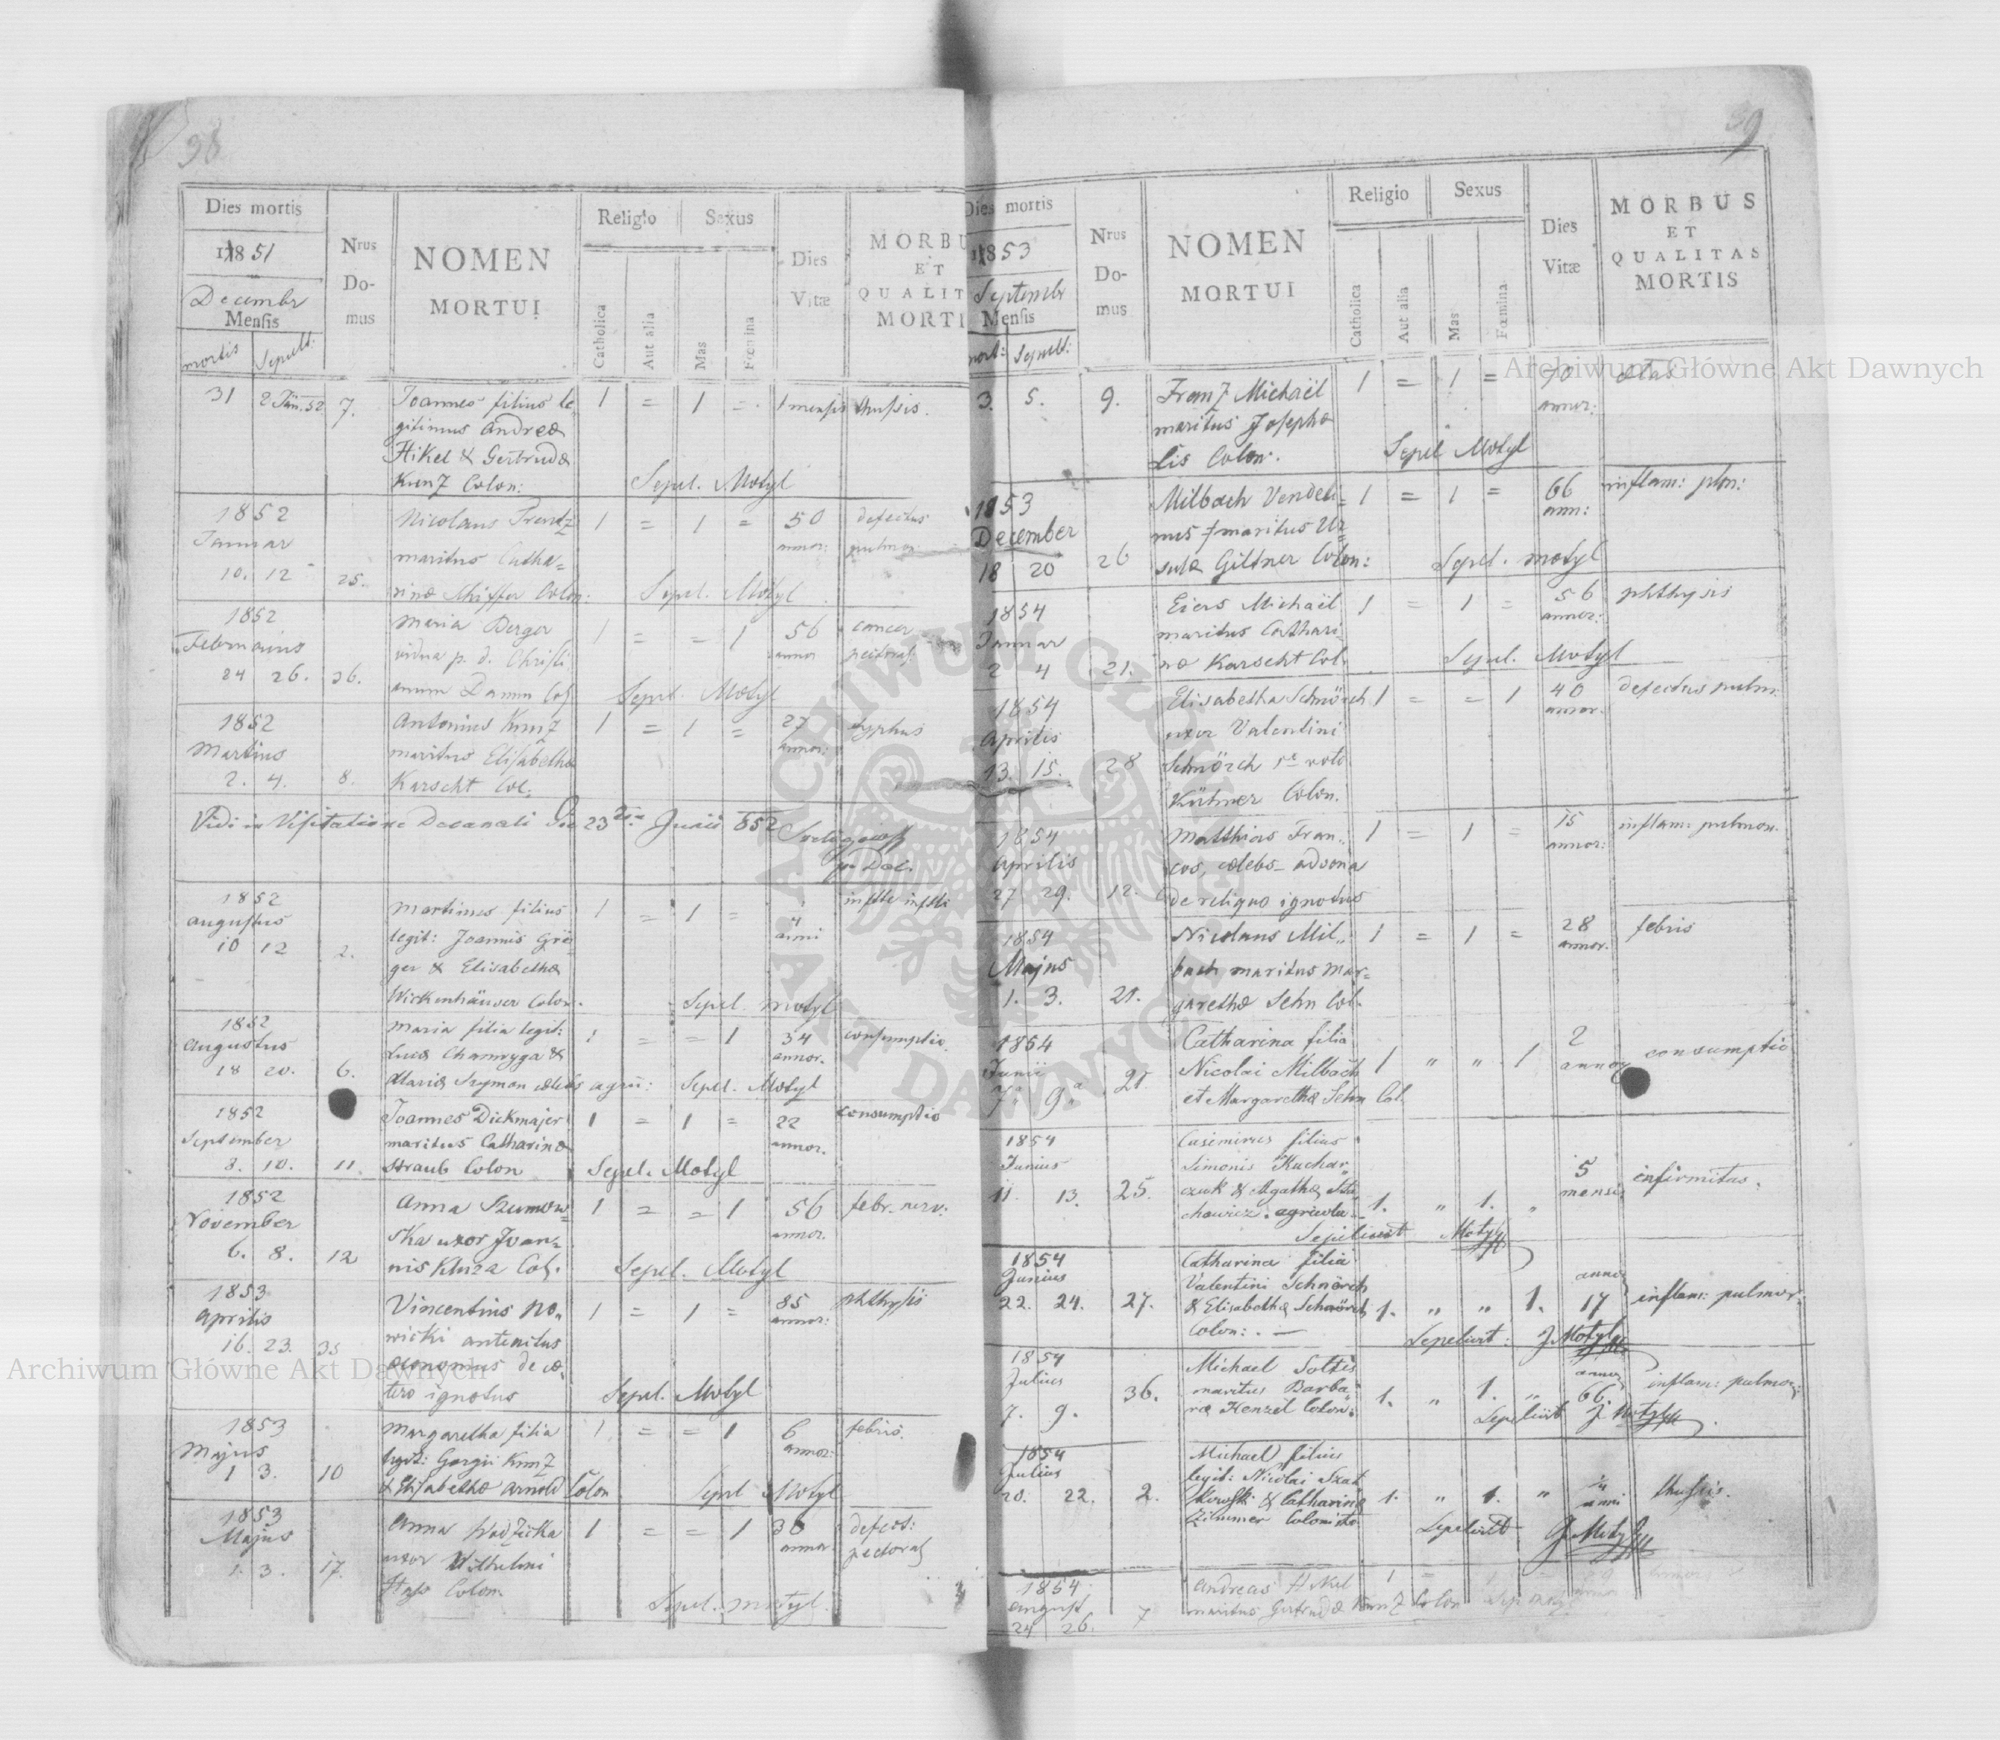 38
Dies mortis
1851
Decembr
Mensis
mortis Sepult:
Nrus
Do-
mus
NOMEN
MORTUI
Religio
Sexus
Catholica
Aut alia
Mas
Fœmina
Dies
Vitæ
MORBU
ET
QUALIT
MORTI
31 2 Jan. 52 7. Joannes filius le- 1 = 1 = 1 mensis thussis.
gitimus Andreæ
Hikel & Gertrudæ
Kunz Colon: Sepel. Motyl
1852
Januar
10. 12 25. Nicolaus 1 = 1 = 50 defectus
annor: pulmon
maritus Catha=
rinæ Schiffer Colon: Sepel. Motyl
1852
Februarius
24 26. 26. Maria Berger 1 = = 1 56 cancer
annor pectoral:
vidua p. d. Christi
anum Damm Col Sepel. Motyl
1852
Martius
2. 4. 8. Antonius Kunz 1 = 1 = 27 typhus
annor:
maritus Elisabethæ
Karscht Col:
Vidi in Visitatione Decanali Die 23tia Junii 852
Dec.
1852
Augustus
10 12 2. Martinus filius 1 = 1 = 4
anni
legit: Joannis Grö=
ger & Elisabethæ
Wickenhäuser Colon. Sepel. Motyl
1852
Augustus
18 20. 6. Maria filia legit: 1 = = 1 34 consumptio
annor.
Lucæ Chamryga &
Mariæ Szyman cælebs agric: Sepel. Motyl
1852
September
8. 10. 11. Joannes Dickmajer 1 = 1 = 22 consumptio
annor.
maritus Catharinæ
Straub Colon Sepel. Motyl
1852
November
6. 8. 12 Anna Szumow= 1 = = 1 56 febr. nerv:
annor.
ska uxor Joan=
nis Kluza Col. Sepel. Motyl
1853
Aprilis
16. 23. 35 Vincentius No- 1 = 1 = 85 phthysis
annor:
wicki antenitus
œconomus de cæ-
tero ignotus Sepel. Motyl
1853
Majus
1 3. 10 Margaretha filia 1 = = 1 6 febris.
annor:
legit: Georgii Kunz
& Elisabethæ Arnold Colon Sepel Motyl
1853
Majus
1. 3. 17. Anna 1 = = 1 30 defect:
annor pectoral
uxor Wilhelmi
Colon. Sepel. Motyl.
39
Dies mortis
1853
Septembr
Mensis
mort: Sepult:
Nrus
Do-
mus
NOMEN
MORTUI
Religio
Sexus
Catholica
Aut alia
Mas
Fœmina
Dies
Vitæ
MORBUS
ET
QUALITAS
MORTIS
3. 5. 9. Franz Michaël 1 = 1 = 70 ætas
annor:
maritus Josephæ
Lis Colon. Sepel Motyl
1853
December
18 20 26 Milbach Vendeli= 1 = 1 = 66 inflam: plm:
ann:
nus maritus Ur
sulæ Giltner Colon: Sepel. Motyl
1854
Januar
2 4 21. Eiers Michaël 1 = 1 = 56 phthysis
annor:
maritus Cathari-
næ Karscht Col. Sepel. Motyl
1854
Aprilis
13. 15. 28 Elisabetha Schnörch 1 = = 1 40 defectus pulm:
annor.
uxor Valentini
Schnörch voto
Kühner Colon.
1854
Aprilis
27 29. 12. Matthias Fran- 1 = 1 = 15 inflam: pulmon.
annor:
cos, cælebs advena
de reliquo ignotus
1854
Majus
1. 3. 21. Nicolaus Mil- 1 = 1 = 28 febris
annor.
bach maritus Mar=
garethæ Sehn Col.
1854
Junii
7ª 9ª 21 Catharina filia
Nicolai Milbach 1 " " 1 2 consumptio
annor
et Margarethæ Sehn Col.
1854
Junius
11. 13. 25. Casimirus filius
Simonis Kuchar-
czuk & Agathæ 1. " 1. " 5 infirmitas.
mensi
chowicz. agricolæ
Sepelivit Motyl
1854
Junius
22. 24. 27. Catharina filia
Valentini Schnörch
& Elisabethæ Schnörch 1. " " 1. annor 17 inflam: pulmor.
Colon: . — Sepelivit: J Motyl
1854
Julius
7. 9. 36. Michael Soltis
maritus Barba- 1. " 1. " annor 66. inflam: pulmor:
ræ Henzel Colon: Sepelivit J. Motyl
1854
Julius
20. 22. 2. Michael filius
legit: Nicolai Szat
kowski & Catharinæ 1. " 1. " anni thusis.
Zihmmer Colonistæ Sepelivit J. Motyl
1854
August
24 26. 7 Andreas Hikel 1 =
maritus Gertrudæ Kunz Colon Sep Motyl
Archiwum Główne Akt Dawnych
Archiwum Główne Akt Dawnych
ARCHIWUM GŁÓWNE AKT DAWNYCH